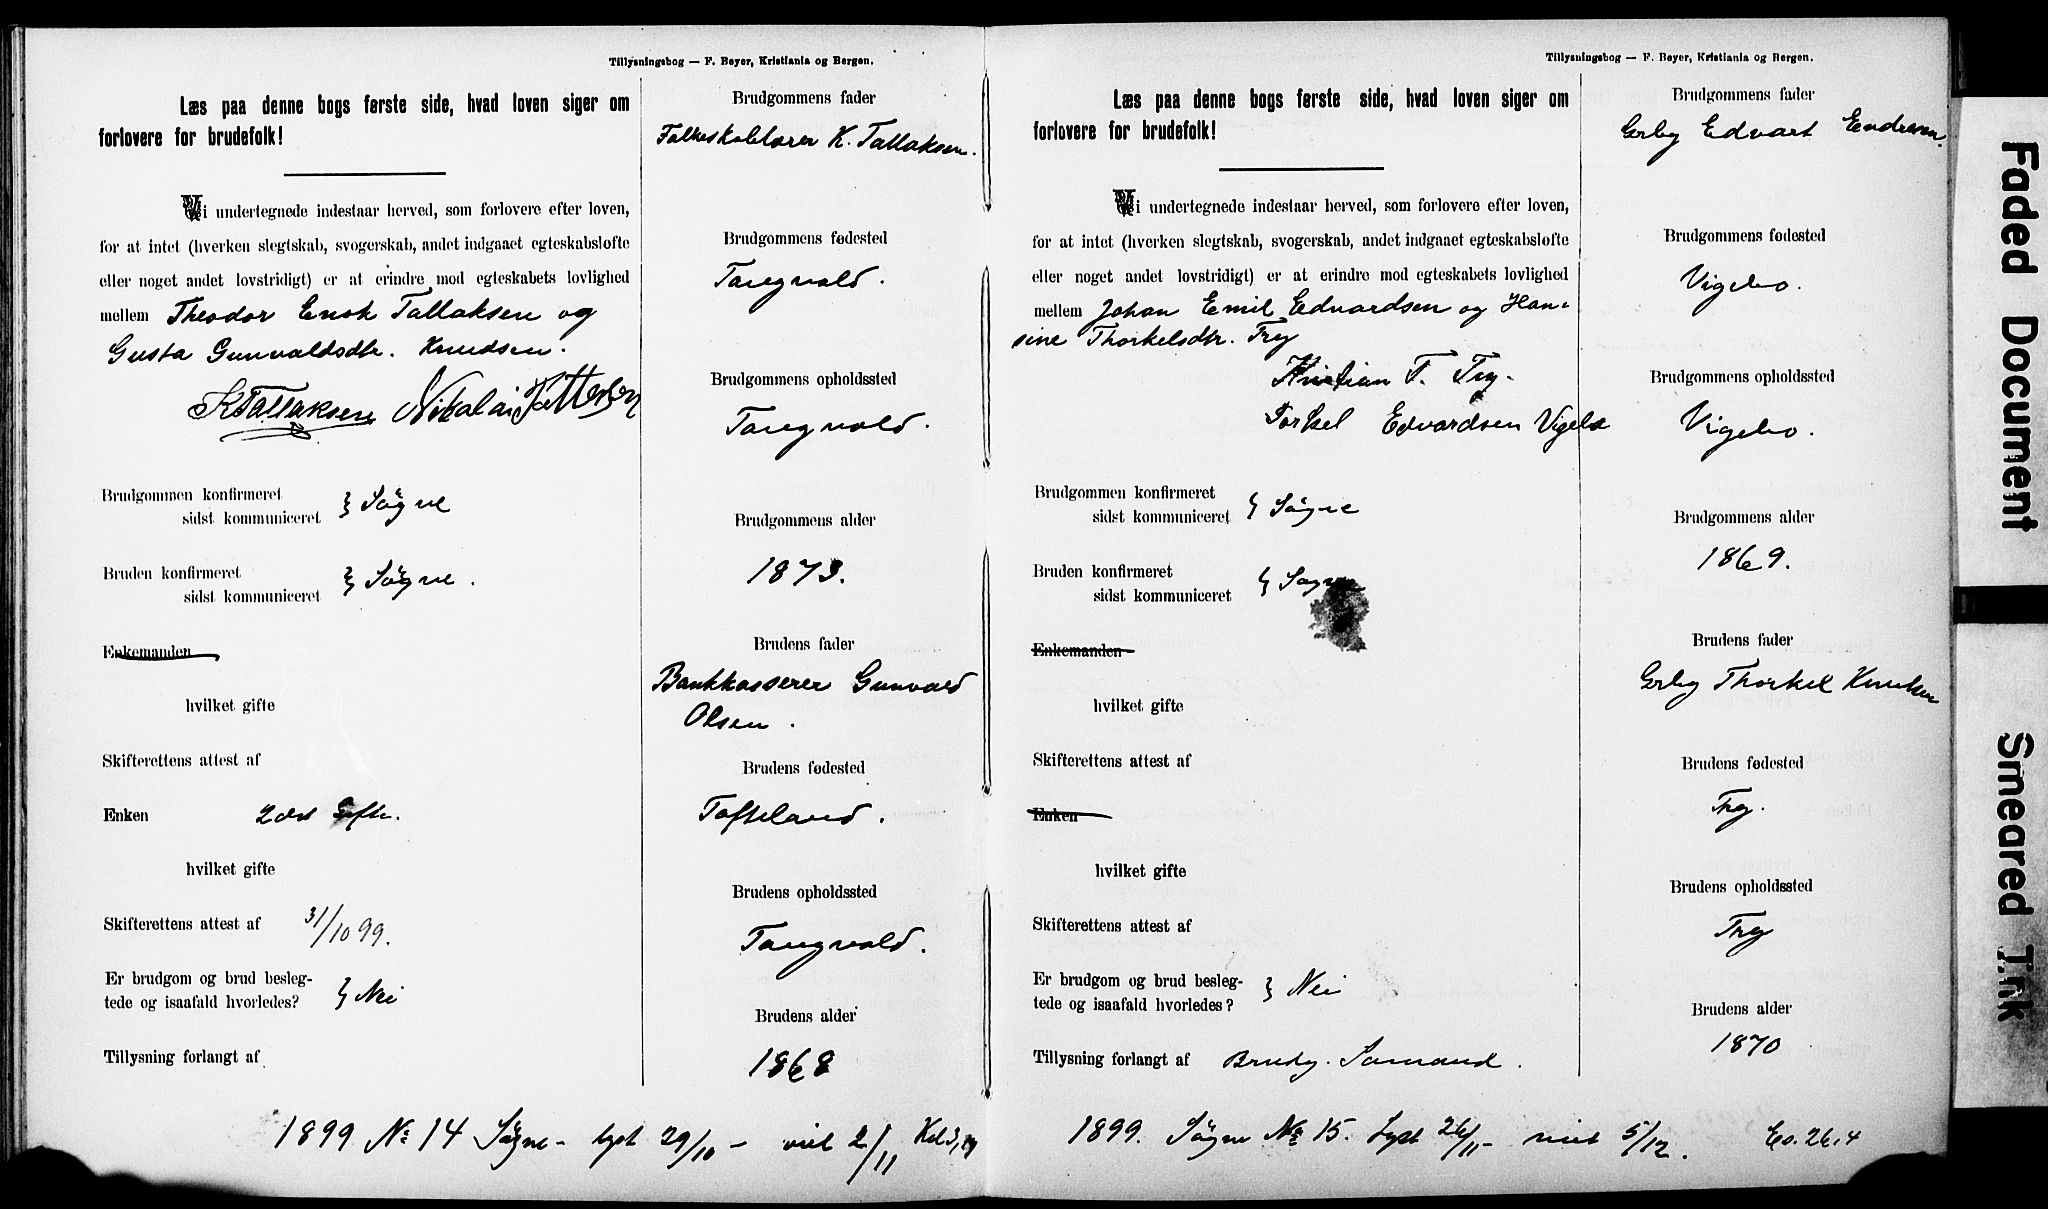 Tillysningsbog — F. Beyer, Kristiania og Bergen.
Læs paa denne bogs første side, hvad loven siger om
forlovere for brudefolk!
Vi undertegnede indestaar herved, som forlovere efter loven,
for at intet (hverken slegtskab, svogerskab, andet indgaaet egteskabsløfte
eller noget andet lovstridigt) er at erindre mod egteskabets lovlighed
mellem Theodor Enok Tallaksen og
Gusta Gunvaldsdtr. Knudsen.
K Tallaksen Nikolai Pettersen
Brudgommen konfirmeret
sidst kommuniceret } Søgne
Bruden konfirmeret
sidst kommuniceret } Søgne.
Enkemanden
hvilket gifte
Skifterettens attest af
Enken 2det Gifte.
hvilket gifte
Skifterettens attest af 31/10 99.
Er brudgom og brud besleg-
tede og isaafald hvorledes? } Nei
Tillysning forlangt af
Brudgommens fader
Folkeskolelærer K. Tallaksen.
Brudgommens fødested
Tangvald.
Brudgommens opholdssted
Tangvald.
Brudgommens alder
1873.
Brudens fader
Bankkasserer Gunvald
Olsen.
Brudens fødested
Tofteland.
Brudens opholdssted
Tangvald.
Brudens alder
1868
1899 No 14 Søgne - lyst 29/10 - viet 2/11
Tillysningsbog — F. Beyer, Kristiania og Bergen.
Læs paa denne bogs første side, hvad loven siger om
forlovere for brudefolk!
Vi undertegnede indestaar herved, som forlovere efter loven,
for at intet (hverken slegtskab, svogerskab, andet indgaaet egteskabsløfte
eller noget andet lovstridigt) er at erindre mod egteskabets lovlighed
mellem Johan Emil Edvardsen og Han-
sine Thorkelsdtr. Try
Kristian T. Try.
Torkel Edvardsen Vigebo
Brudgommen konfirmeret
sidst kommuniceret } Søgne
Bruden konfirmeret
sidst kommuniceret } Søgne
Enkemanden
hvilket gifte
Skifterettens attest af
Enken
hvilket gifte
Skifterettens attest af
Er brudgom og brud besleg-
tede og isaafald hvorledes? } Nei
Tillysning forlangt af Brudg. Samland.
Brudgommens fader
Grbg Edvart Endresen.
Brudgommens fødested
Vigebo.
Brudgommens opholdssted
Vigebo.
Brudgommens alder
1869.
Brudens fader
Grbg Thorkel Knudsen
Brudens fødested
Try.
Brudens opholdssted
Try
Brudens alder
1870
1899. Søgne No 15. Lyst 26/11 - viet 5/12. Ev. 26.4
Faded Document
Smeared Ink